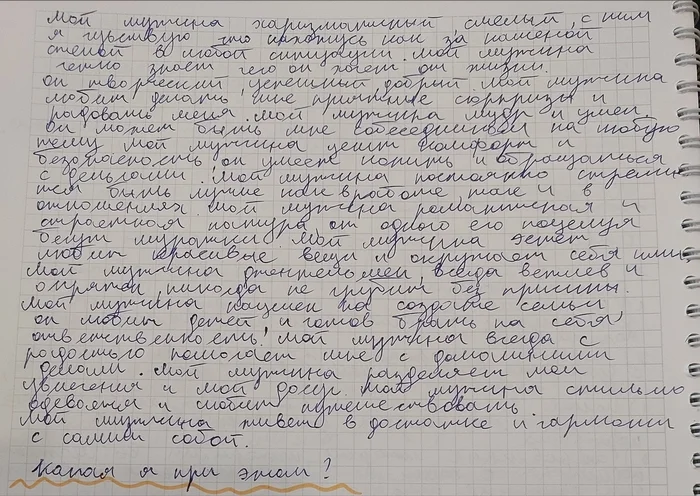 Мой мужчина харизматичный смелый, с ним
я чувствую что нахожусь как за каменой
стеной в любой ситуации. Мой мужчина
четко знает чего он хочет от жизни.
он творческий, успешный, добрый. Мой мужчина
любит делать мне приятные сюрпризы и
радовать меня. Мой мужчина мудр и умен
он может быть мне собеседником на любую
тему мой мужчина ценит комфорт и
безопасность он умеет копить и обращаться
с деньгами. Мой мужчина постоянно стреми
тся быть лучше как в работе, так и в
отношениях. Мой мужчина романтичная и
страстная натура от одного его поцелуя
бегут мурашки. Мой мужчина эстет
любит красивые вещи и окружает себя ими
Мой мужчина джентельмен, всегда вежлив и
опрятен, никогда не грубит без причины.
Мой мужчина нацелен на создание семьи
он любит детей и готов брать на себя
ответственность, мой мужчина всегда с
радостью помогает мне с домашними
делами. Мой мужчина разделяет мои
увлечения и мой досуг. Мой мужчина стильно
одевается и любит путешествовать.
Мой мужчина живет в достатке и гармонии
с самим собой.
Какая я при этом?